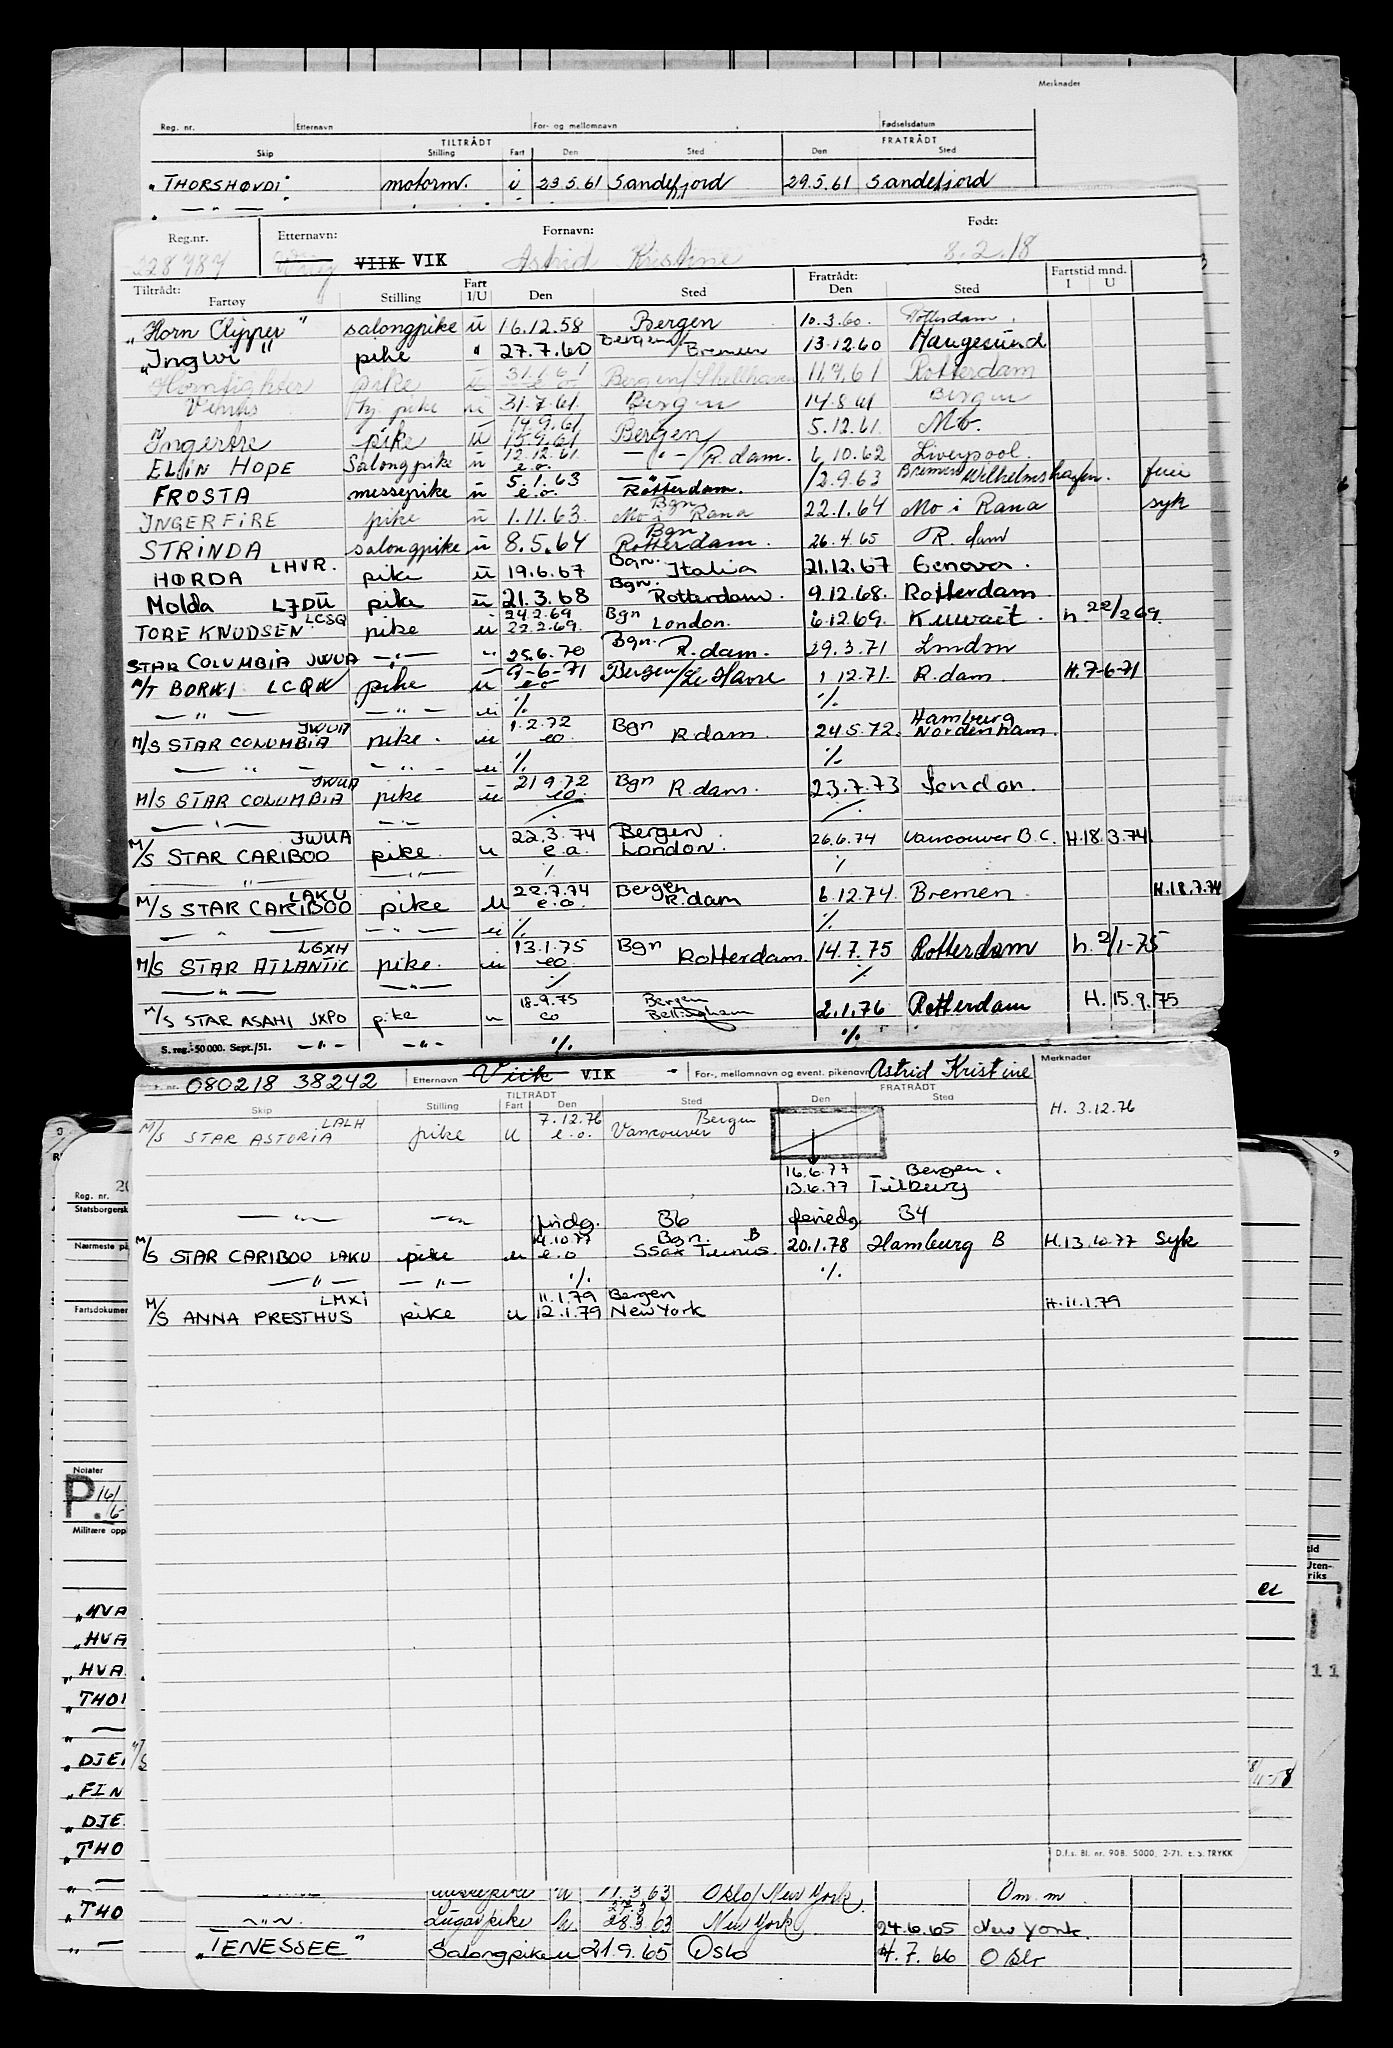 Merknader
Reg. nr. Etternavn For- og mellomnavn Fødselsdatum
TILTRÅDT FRATRÅDT
Skip Stilling Fart Den Sted Den Sted
"THORSHØVDI" motorm. i 23.5.61 Sandefjord 29.5.61 Sandefjord
Reg.nr. Etternavn: Fornavn: Født:
228787 VIIK VIK Astrid Kristine 8.2.18
Tiltrådt: Fratrådt: Fartstid mnd.
Fartøy Stilling Fart I/U Den Sted Den Sted I U
"Horn Clipper" salongpike u 16.12.58 Bergen 10.3.60. Rotterdam.
"Ingwi" pike " 27.7.60 Bergen/Bremen 13.12.60 Haugesund
Hornfighter pike u 31.1.61 e.o. Bergen/Shellhaven 11.7.61 Rotterdam
Venus pike u 31.7.61. Bergen 14.8.61 Bergen
Ingertre pike u 14.9.61 15.9.61 Bergen 5.12.61. Mo.
ELIN HOPE Salongpike u 12.12.61. e.o. —"—/R.dam. 6.10.62 Liverpool.
FROSTA messepike u 5.1.63 e.o. —"— Rotterdam. 12.9.63 Bremen Wilhelmshafen. ferie
INGERFIRE pike u 1.11.63. Bgn Mo i Rana 22.1.64 Mo i Rana syk
STRINDA salongpike u 8.5.64 Bgn. Rotterdam. 26.4.65 R.dam
HØRDA LHVR. pike u 19.6.67 Bgn. Italia 21.12.67 Genova.
Molda LJDU pike u 21.3.68 Bgn. Rotterdam. 9.12.68. Rotterdam
TORE KNUDSEN LCSQ pike u 24.2.69 22.2.69. Bgn London. 6.12.69. Kuwait. h. 22/2 69.
STAR COLUMBIA JWUA —"— " 25.6.70 Bgn. R.dam. 29.3.71 London
M/T BORKI LCQK pike u 9-6-71 eo Bergen/Le Havre 1.12.71. R.dam H.7-6-71
—"— —"— u % %
M/S STAR COLUMBIA JWUA pike. u 1.2.72 eo. Bgn R.dam. 24.5.72. Hamburg Nordenham.
—"— —"— u % %
M/S STAR COLUMBIA JWUA pike u 21.9.72 eo. Bgn R.dam. 23.7.73 London.
—"— —"— % %
M/S STAR CARIBOO JWUA pike. u 22.3.74 e.o. Bergen London. 26.6.74 Vancouver B.C. H.18.3.74.
—"— —"— % %
M/S STAR CARIBOO LAKU pike u 22.7.74 e.o. Bergen R.dam 6.12.74. Bremen H.18.7.74
—"— —"— u % %
M/S STAR ATLANTIC LGXH pike. u 13.1.75 eo Bgn Rotterdam. 14.7.75 Rotterdam h. 2/1-75
—"— —"— % %
M/S STAR ASAHI JXPO pike u 18.9.75 eo Bergen Bellingham 2.1.76 Rotterdam H. 15.9.75
S. reg.-50 000. Sept./51. —"— —"— % %
nr. 080218 38242 Etternavn Viik VIK For-, mellomnavn og event. pikenavn Astrid Kristine Merknader
TILTRÅDT FRATRÅDT
Skip Stilling Fart Den Sted Den Sted
M/S STAR ASTORIA LALH pike u 7.12.76 e.o. Bergen Vancouver H. 3.12.76
16.6.77 Bergen.
13.6.77 Tilbury
—"— —"— B6 feriedg. B4
M/S STAR CARIBOO LAKU pike u 14.10.77 e.o Bgn. B Tunis. 20.1.78 Hamburg B H.13.10.77 Syk
—"— —"— % %
M/S ANNA PRESTHUS LMXI pike u 11.1.79 12.1.79 Bergen New York H.11.1.79
D.f.s. Bl. nr. 908. 5000. 2-71. E. S. TRYKK
9
Reg. nr.
Statsborgersk
Nærmeste på
Fartsdokumen
Notater
P. 16/
Militære opp
Uten-
riks
u
11
"HVA
"HUA
"HVA
"THO
"DJE
"FIN
"DJE
"THO
"THO
u 11.3.63 Oslo/New York. Om.m
—"— Lugarpike u. 27.3 28.3.63 New York 24.6.65 New York.
"TENESSEE" Salongpike u 21.9.65 Oslo 4.7.66 Oslo